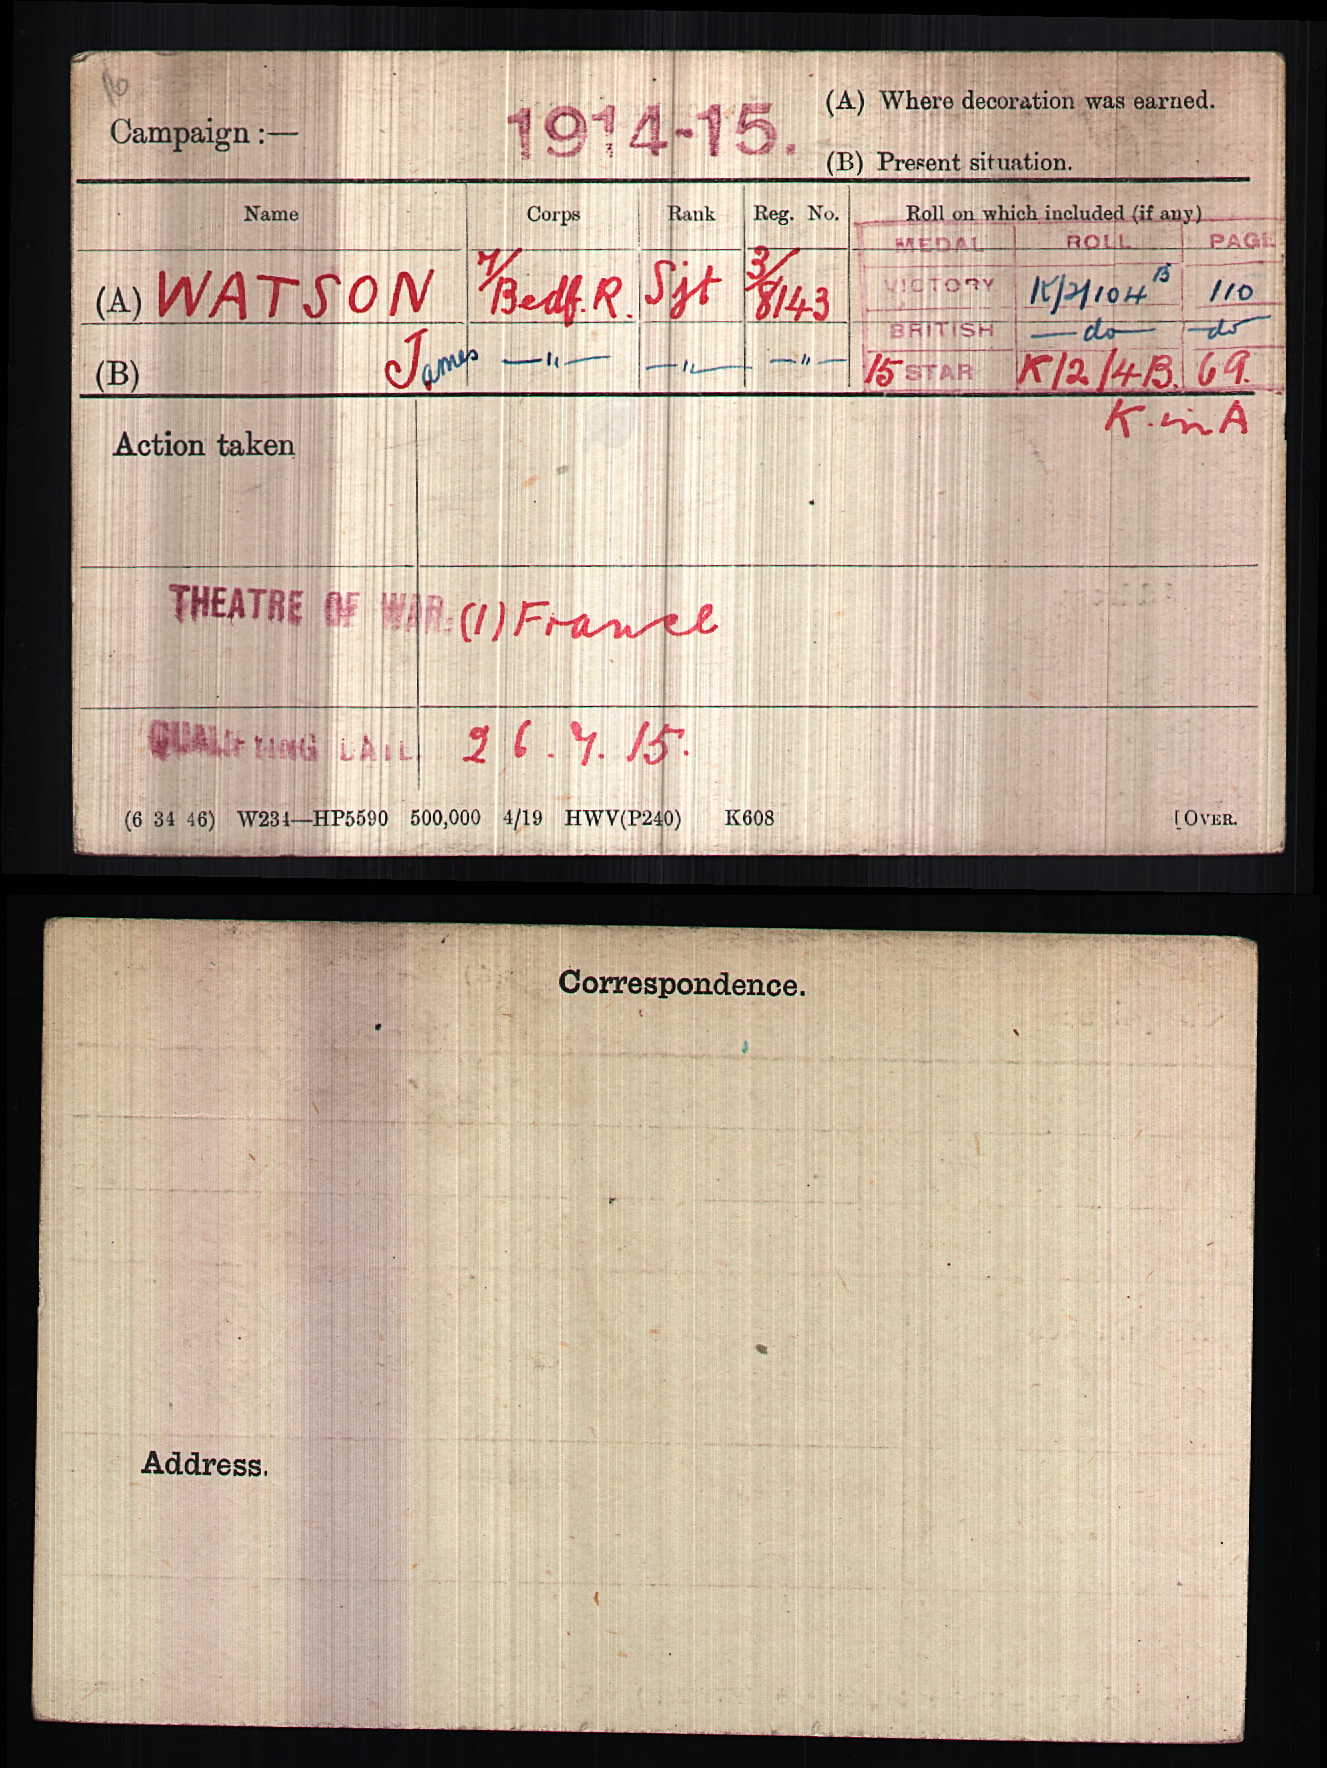 Campaign :— 1914-15. (A) Where decoration was earned.
(B) Present situation.
Name Corps Rank Reg. No. Roll on which included (if any)
MEDAL ROLL PAGE
(A) WATSON 7/Bedf. R. Sjt 3/8143 VICTORY K/2/104 B 110
BRITISH — do — — do
(B) James — " — — " — — " — 15 STAR K/2/4B. 69.
K. in A
Action taken
THEATRE OF WAR. (1) France
QUALIFYING DATE 26.7.15.
(6 34 46) W234—HP5590 500,000 4/19 HWV(P240) K608 [OVER.
Correspondence.
Address.